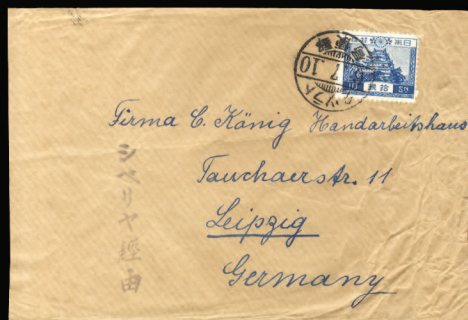 日本郵便
10
Firma C. König Handarbeitshaus
Tauchaerstr. 11
Leipzig
Germany
シベリヤ経由